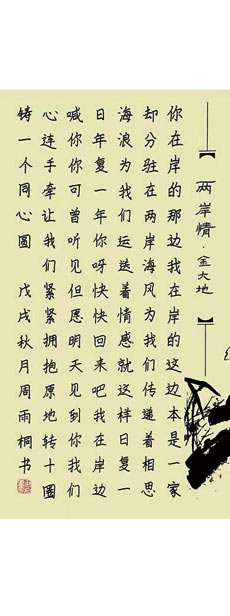 两岸情·金大地
你在岸的那边我在岸的这边本是一家
却分驻在两岸海风为我们传递着相思
海浪为我们运送着情感就这样日复一
日年复一年你呀快快回来吧我在岸边
喊你你可曾听见但愿明天见到你我们
心连手牵让我们紧紧拥抱原地转十圈
铸一个同心圆 戊戌秋月周雨桐书